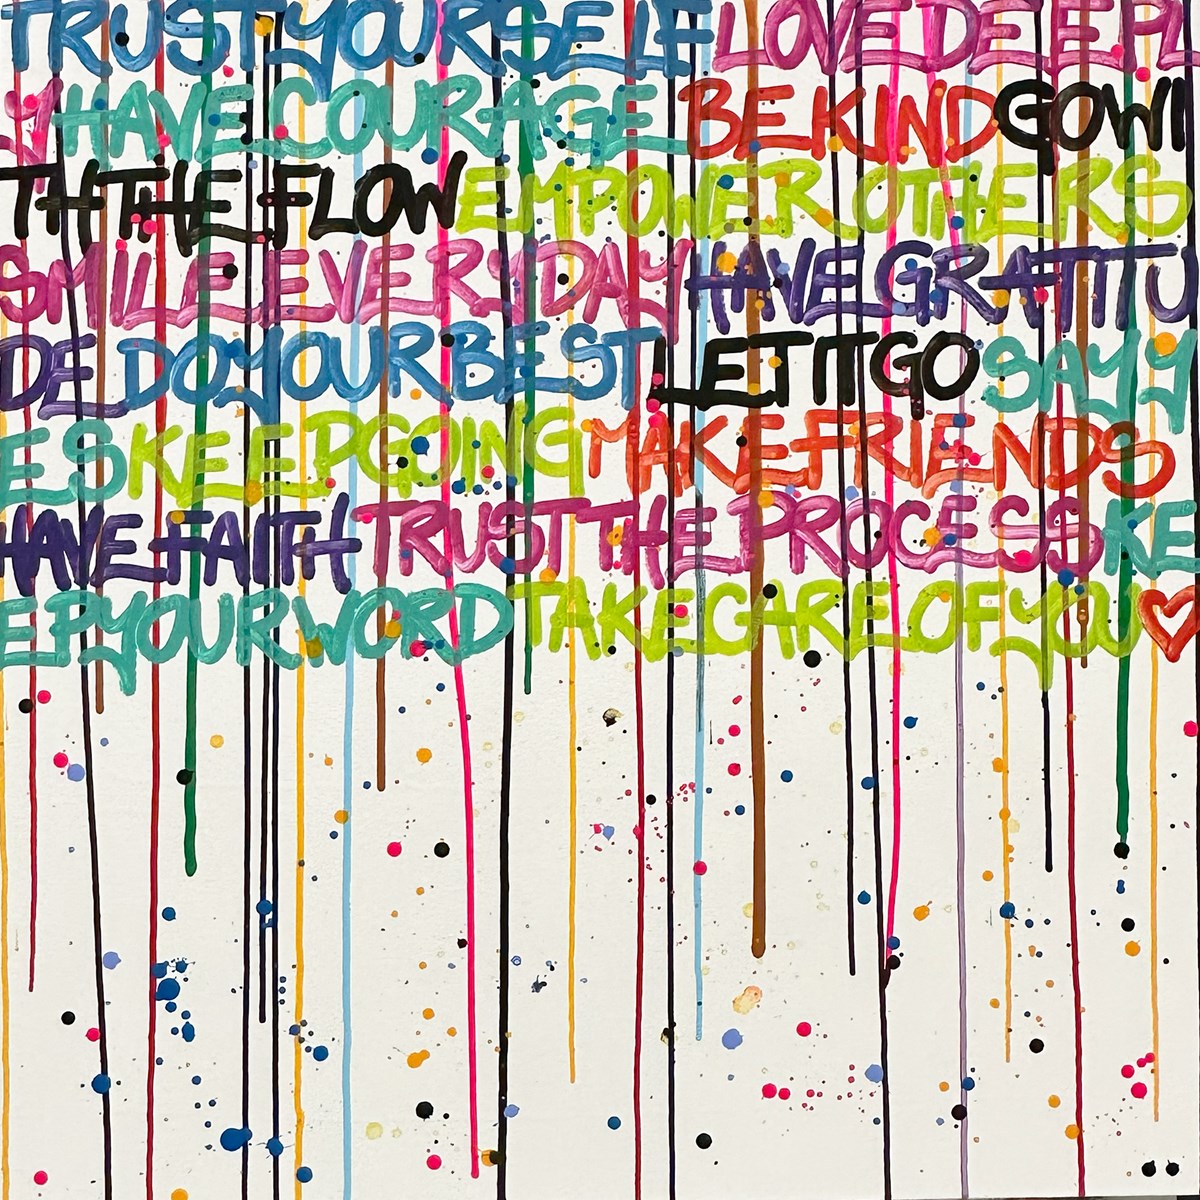 TRUST YOURSELF LOVE DEEPL
Y HAVE COURAGE BE KIND GO WI
TH THE FLOW EMPOWER OTHERS
SMILE EVERYDAY HAVE GRATITU
DE DO YOUR BEST LET IT GO SAY Y
ES KEEP GOING MAKE FRIENDS
HAVE FAITH TRUST THE PROCESS KE
EP YOUR WORD TAKE CARE OF YOU